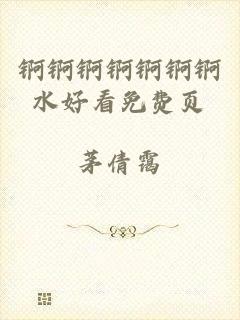 锕锕锕锕锕锕锕
水好看免费页
茅倩霭